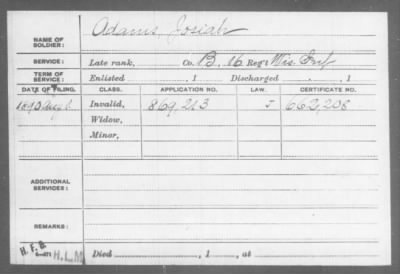 NAME OF SOLDIER: Adams Josiah
SERVICE: Late rank, Co. B, 16 Reg't Wis. Inf
TERM OF SERVICE: Enlisted , 1 Discharged , 1
DATE OF FILING. CLASS. APPLICATION NO. LAW. CERTIFICATE NO.
1890 Aug 6 Invalid, 869,213 J 662,208
Widow,
Minor,
ADDITIONAL SERVICES:
REMARKS:
H.F.B.
6-071 H.L.M. Died , 1 , at